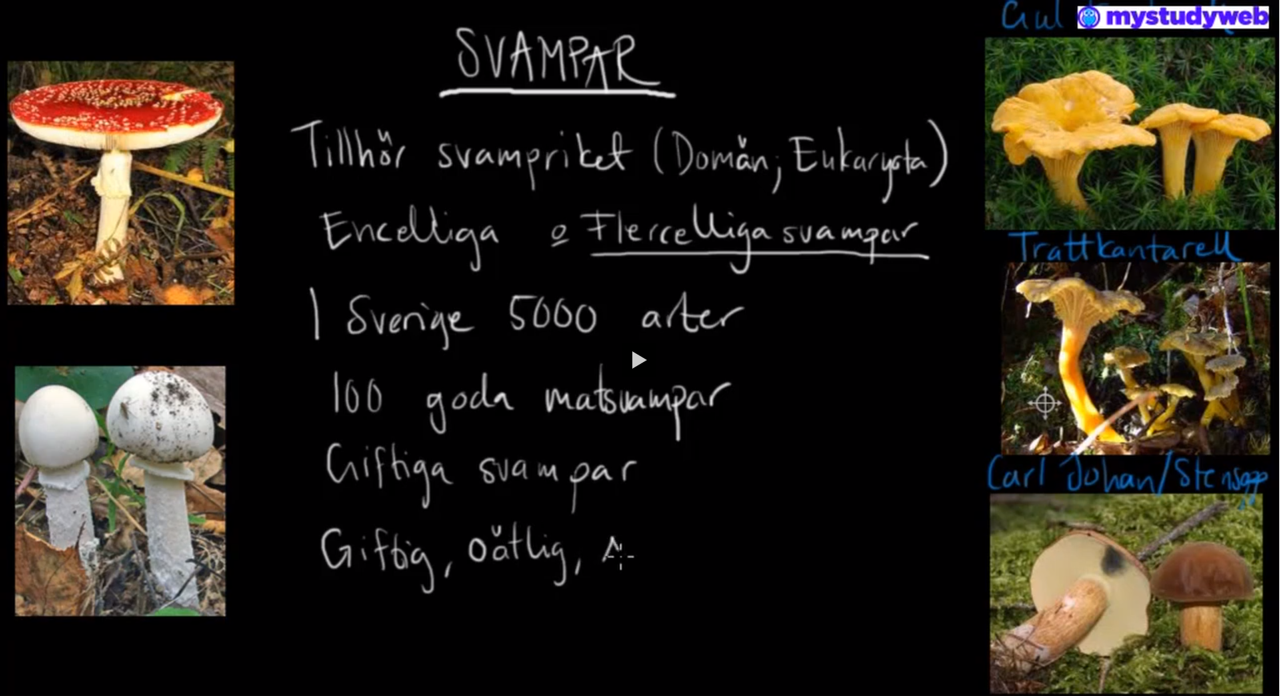 Gul
mystudyweb
SVAMPAR
Tillhör svampriket (Domän; Eukaryota)
Encelliga o Flercelliga svampar
I Sverige 5000 arter
100 goda matsvampar
Giftiga svampar
Giftig, oätlig,
Trattkantarell
Carl Johan/Stensopp